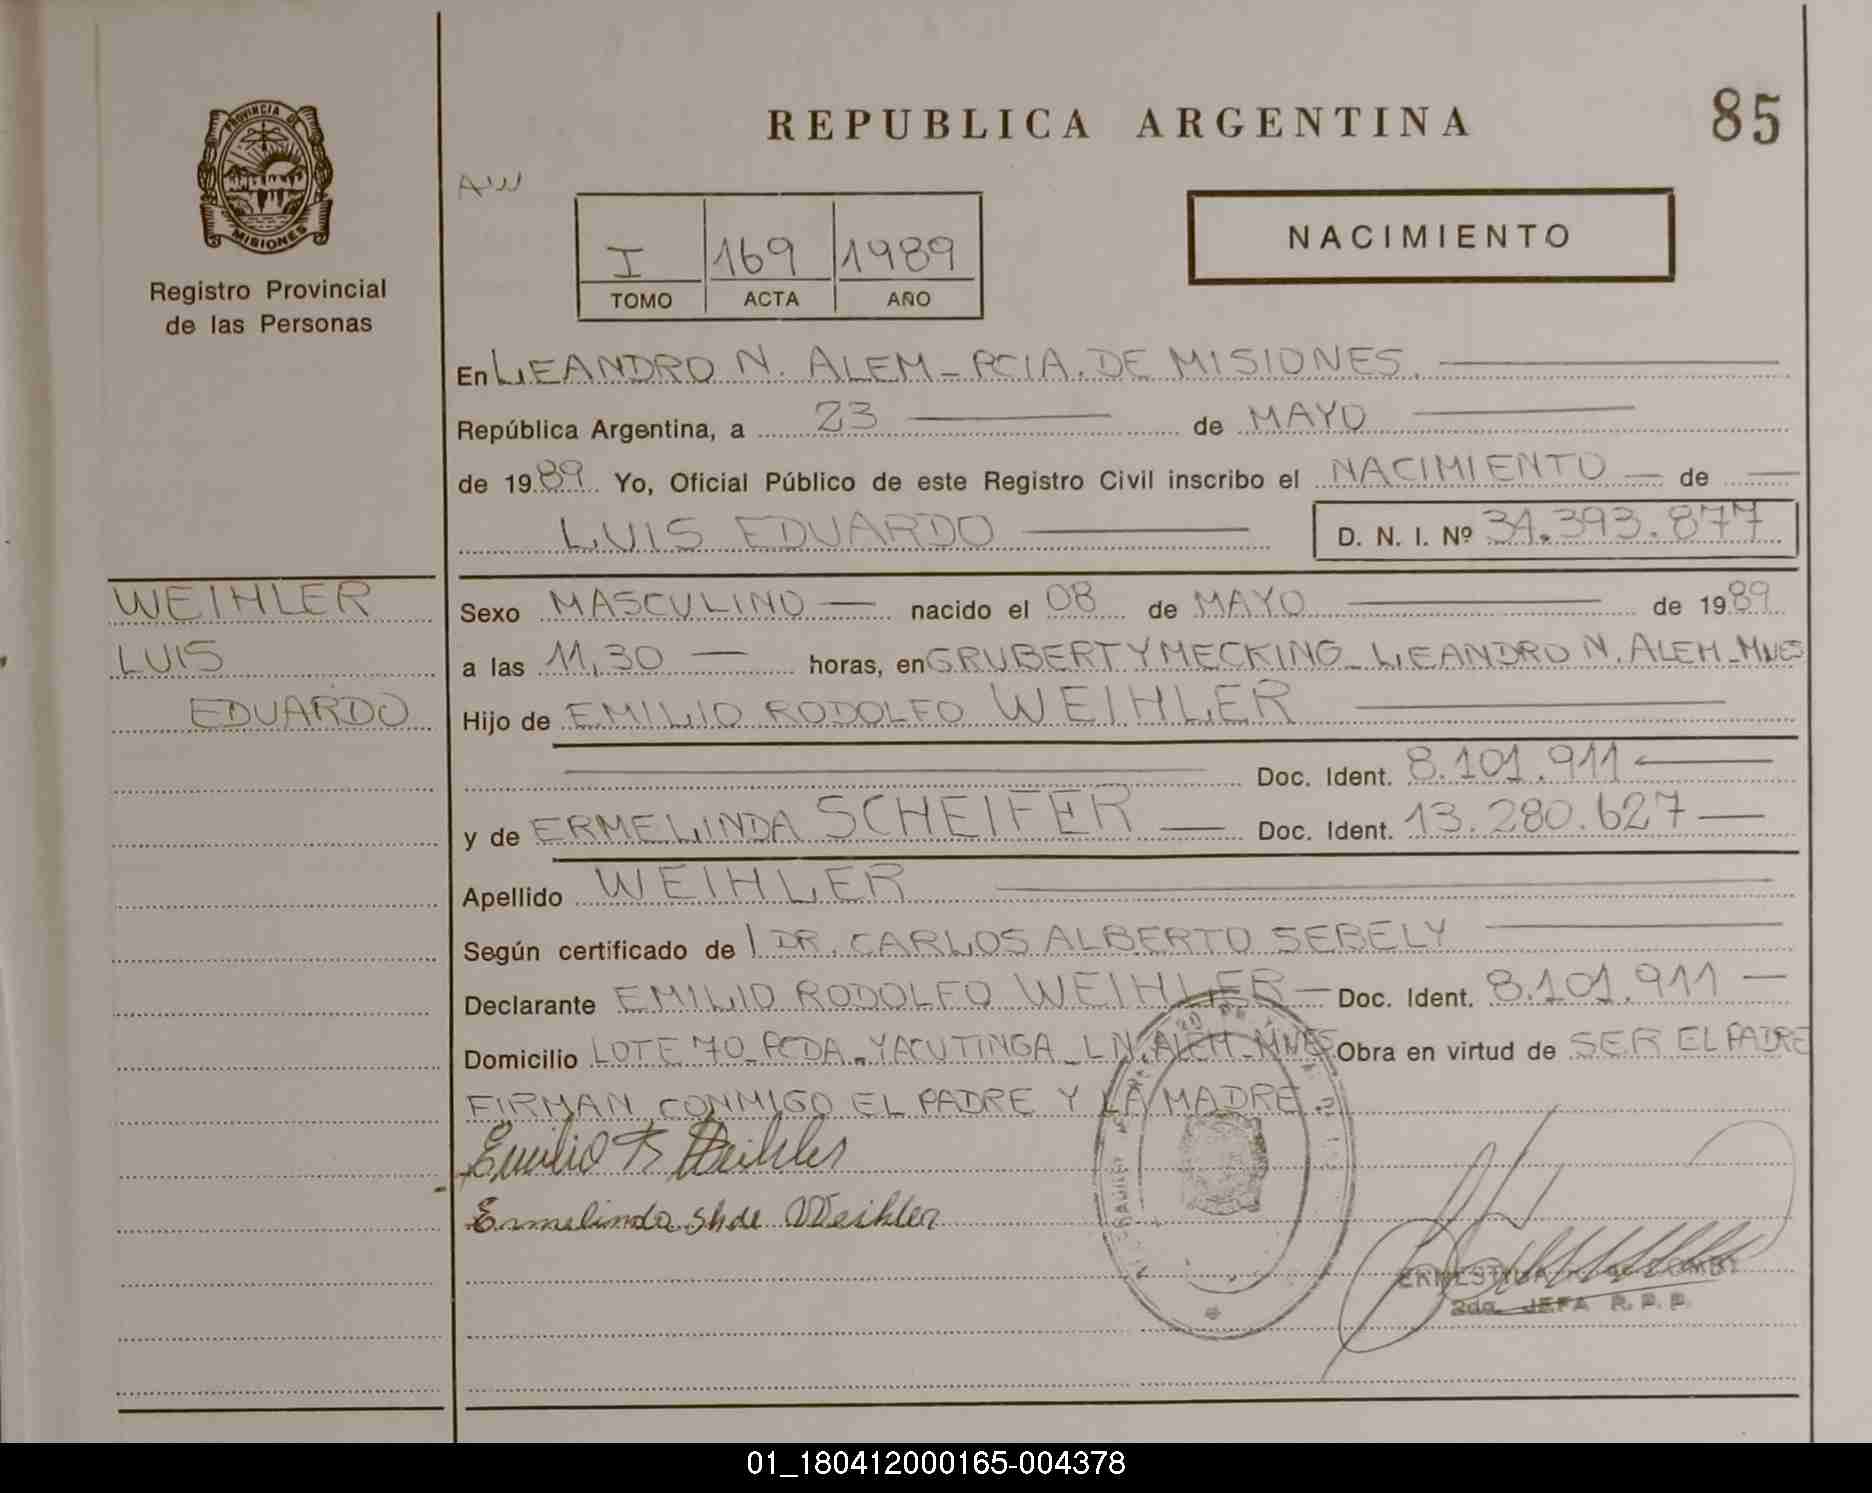 REPUBLICA ARGENTINA
85
PROVINCIA DE
MISIONES
Registro Provincial
de las Personas
NACIMIENTO
I 169 1989
TOMO ACTA AÑO
En LEANDRO N. ALEM - PCIA. DE MISIONES.
República Argentina, a 23 de MAYO
de 1989 Yo, Oficial Público de este Registro Civil inscribo el NACIMIENTO de
LUIS EDUARDO D. N. I. Nº 34.393.877
WEIHLER
LUIS
EDUARDO
Sexo MASCULINO nacido el 08 de MAYO de 1989
a las 11,30 horas, en GRUBERT Y MECKING - LEANDRO N. ALEM - MNES
Hijo de EMILIO RODOLFO WEIHLER
Doc. Ident. 8.101.911
y de ERMELINDA SCHEIFER Doc. Ident. 13.280.627
Apellido WEIHLER
Según certificado de DR. CARLOS ALBERTO SEBELY
Declarante EMILIO RODOLFO WEIHLER Doc. Ident. 8.101.911
Domicilio LOTE 70 - PCDA. YACUTINGA - L.N. ALEM - MNES Obra en virtud de SER EL PADRE
FIRMAN CONMIGO EL PADRE Y LA MADRE
Emilio R Weihler
Ermelinda Sh de Weihler
2da. JEFA R. P. P.
01_180412000165-004378